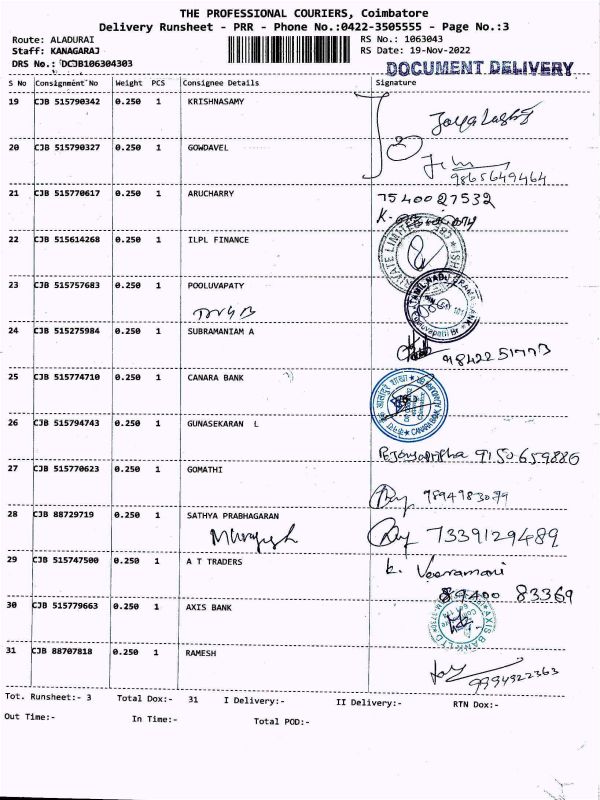 THE PROFESSIONAL COURIERS, Coimbatore
Delivery Runsheet - PRR - Phone No.:0422-3505555 - Page No.:3
Route: ALADURAI RS No.: 1063043
Staff: KANAGARAJ RS Date: 19-Nov-2022
DRS No.: DCJB106304303 DOCUMENT DELIVERY
S No Consignment No Weight PCS Consignee Details Signature
19 CJB 515790342 0.250 1 KRISHNASAMY
20 CJB 515790327 0.250 1 GOWDAVEL
9865649464
21 CJB 515770617 0.250 1 ARUCHARRY 7540027532
22 CJB 515614268 0.250 1 ILPL FINANCE
23 CJB 515757683 0.250 1 POOLUVAPATY
24 CJB 515275984 0.250 1 SUBRAMANIAM A
25 CJB 515774710 0.250 1 CANARA BANK
26 CJB 515794743 0.250 1 GUNASEKARAN L
9150659886
27 CJB 515770623 0.250 1 GOMATHI
28 CJB 88729719 0.250 1 SATHYA PRABHAGARAN
7339129489
29 CJB 515747500 0.250 1 A T TRADERS K. Veeramani
89400 83369
30 CJB 515779663 0.250 1 AXIS BANK
31 CJB 88707818 0.250 1 RAMESH
9994922363
Tot. Runsheet:- 3 Total Dox:- 31 I Delivery:- II Delivery:- RTN Dox:-
Out Time:- In Time:- Total POD:-